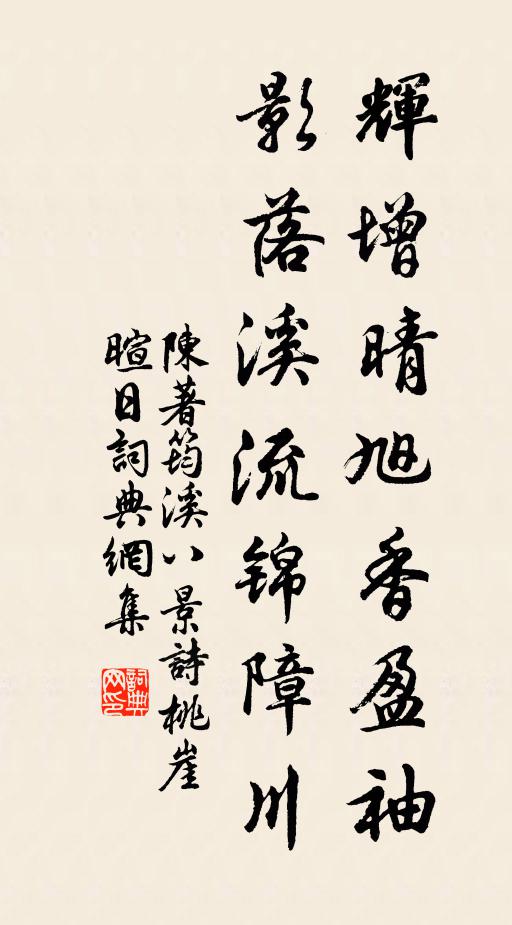 輝增晴旭香盈袖
影落溪流錦障川
陳著筠溪八景詩桃崖
暄日詞典網集
詞典網印